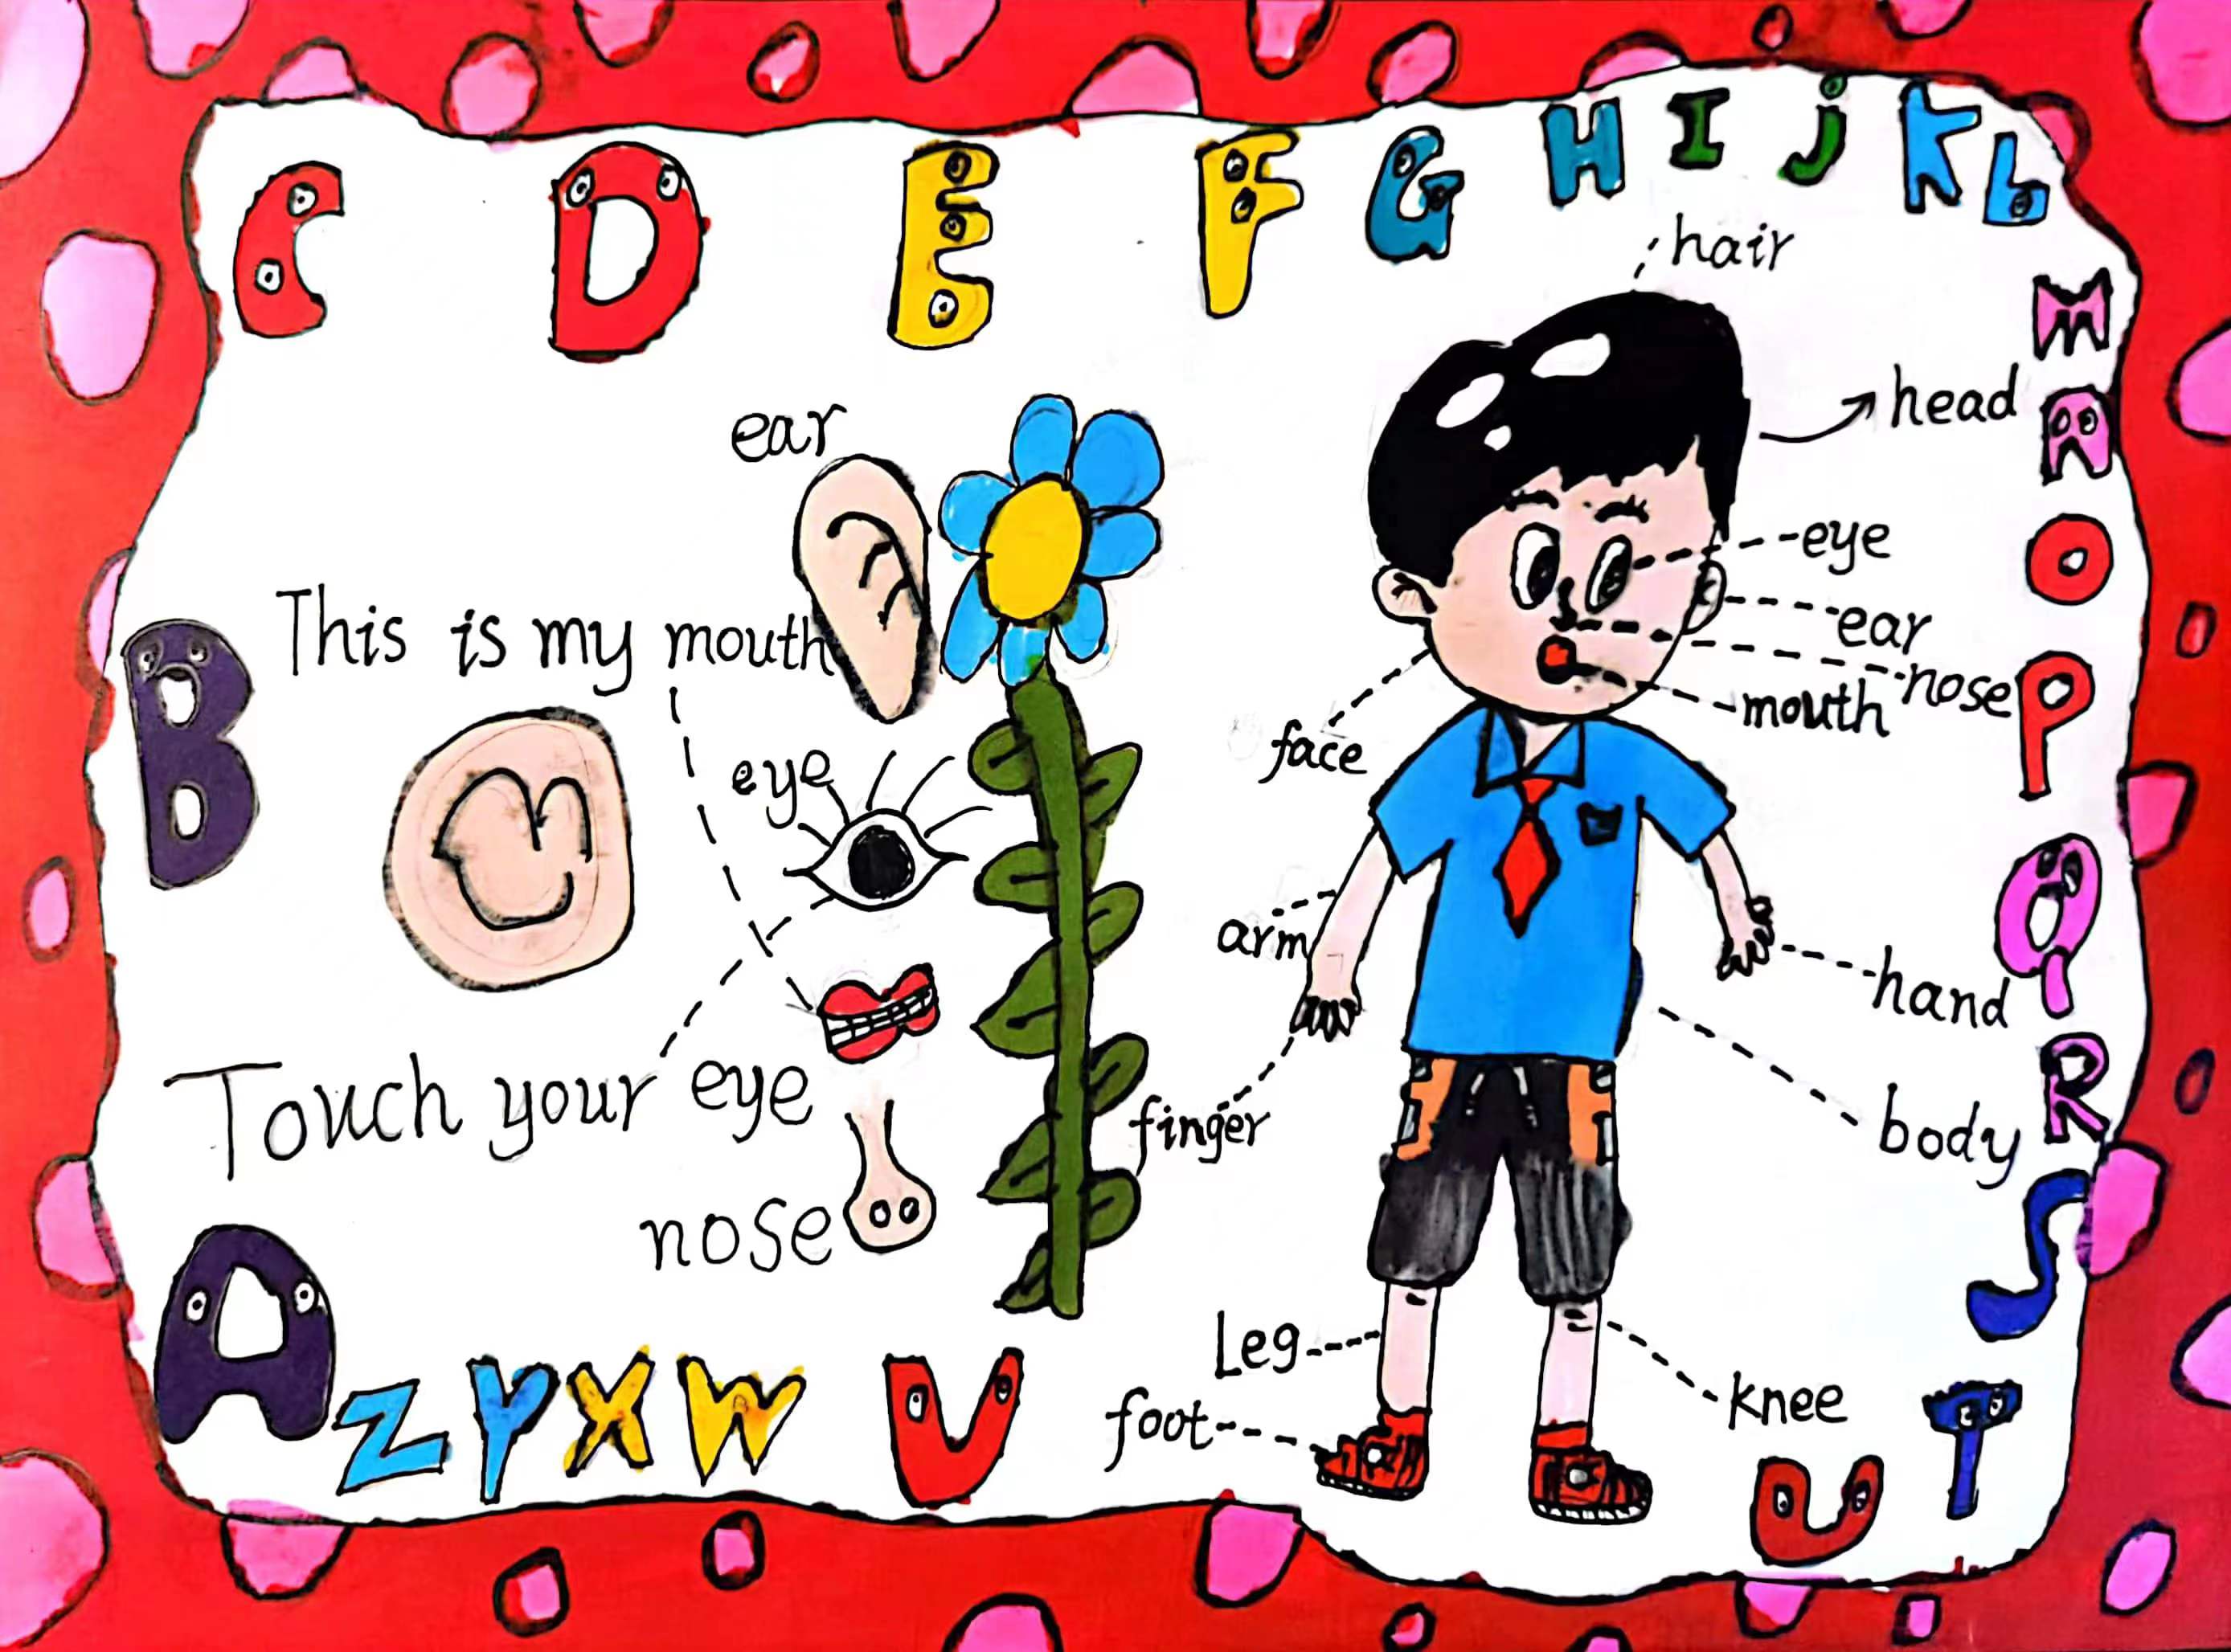 C D E F G H I j K b
hair
head
M
N
ear
eye
ear
nose
mouth
face
O
P
B
This is my mouth
eye
arm
hand
Q
Touch your eye
finger
body
R
nose
S
A
Leg
foot
knee
T
Z Y X W V
U